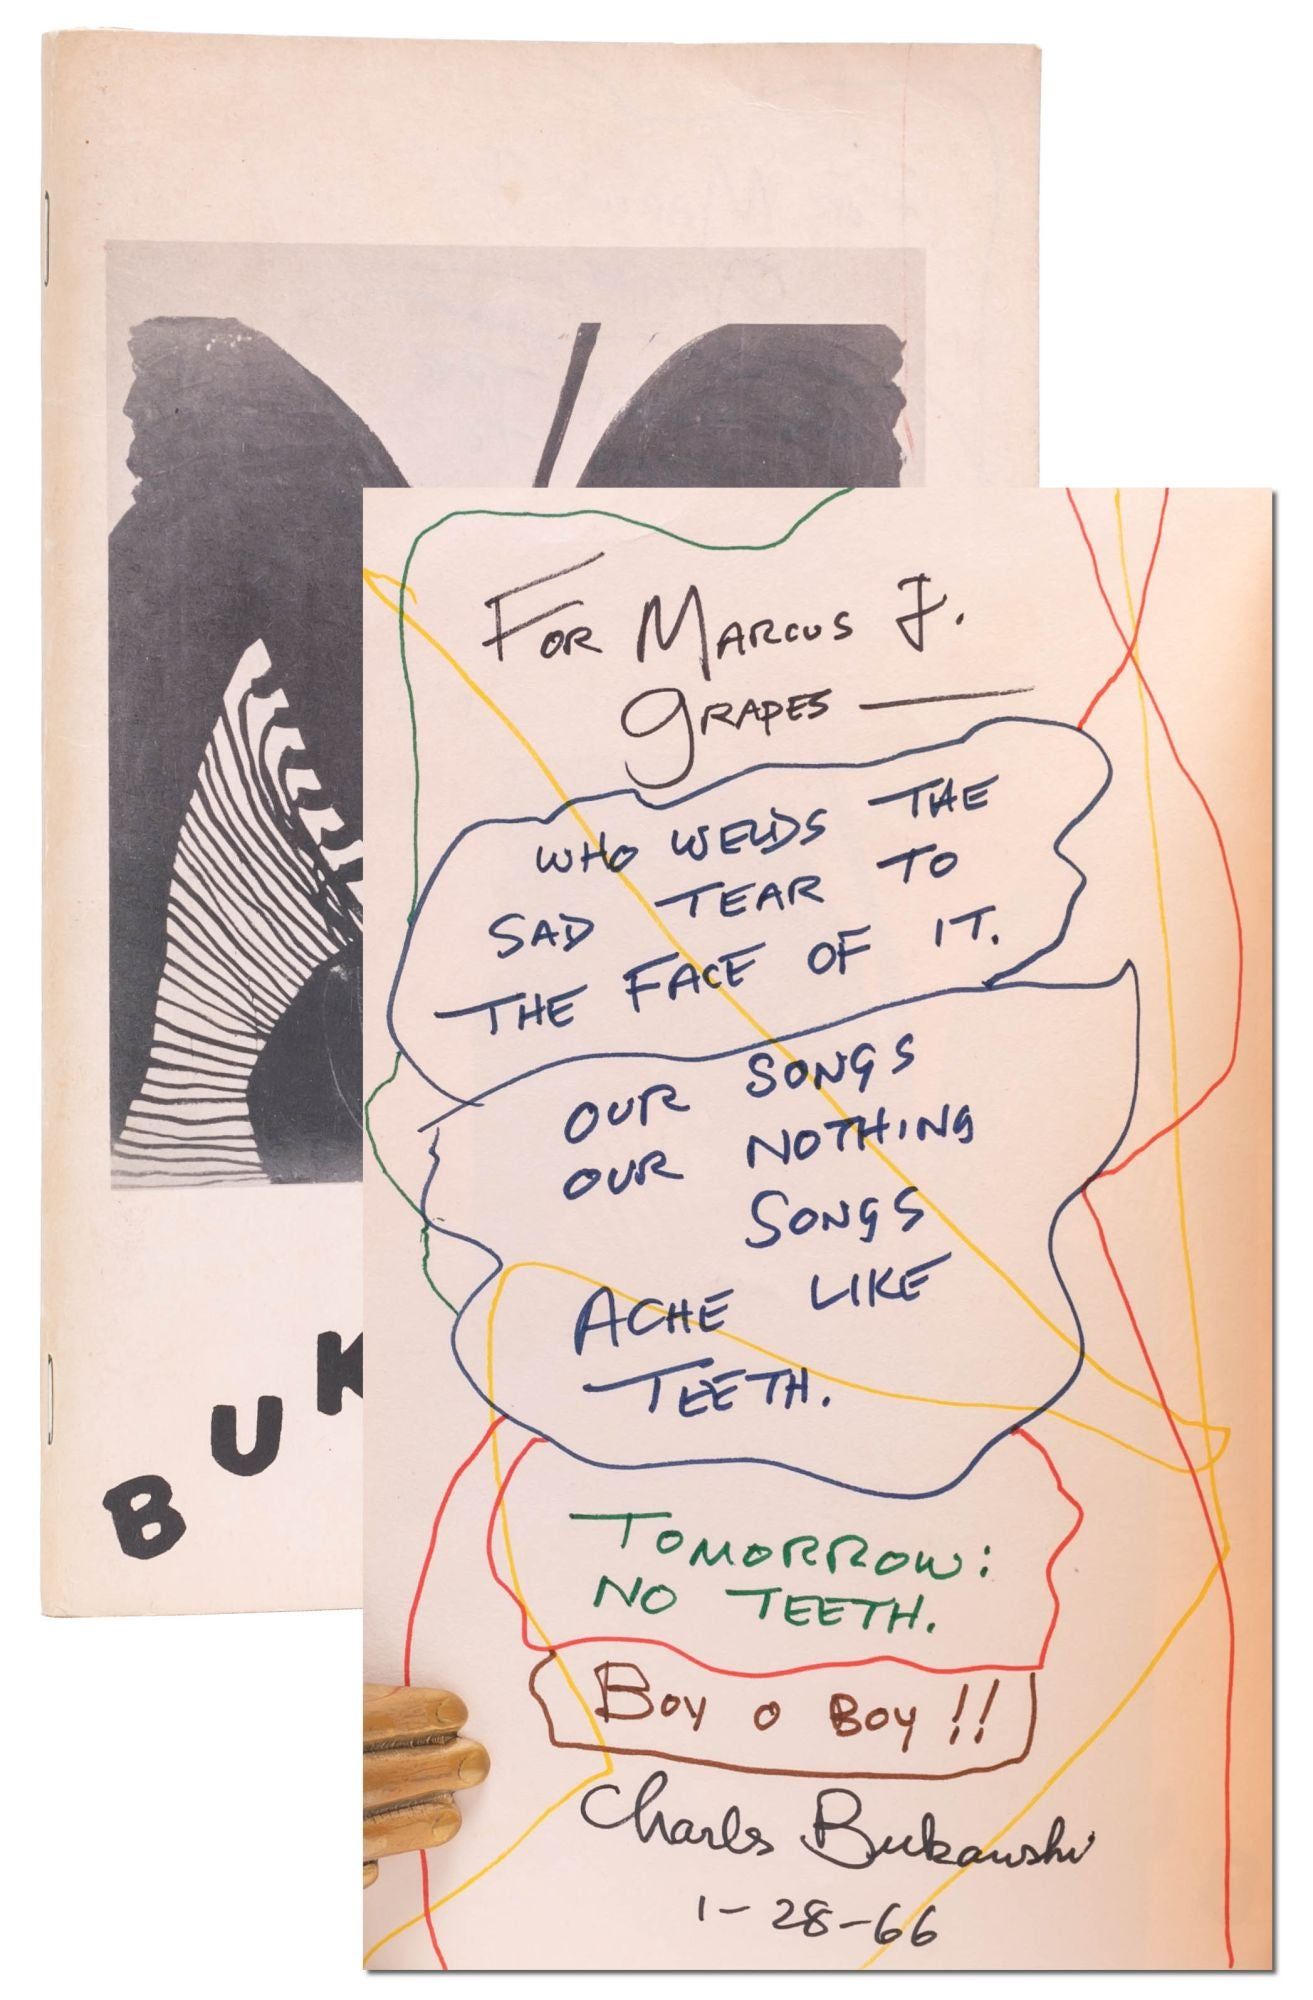 BUK
FOR MARCUS J.
GRAPES —
WHO WELDS THE
SAD TEAR TO
THE FACE OF IT.
OUR SONGS
OUR NOTHING
SONGS
ACHE LIKE
TEETH.
TOMORROW:
NO TEETH.
BOY O BOY!!
Charles Bukowski
1-28-66